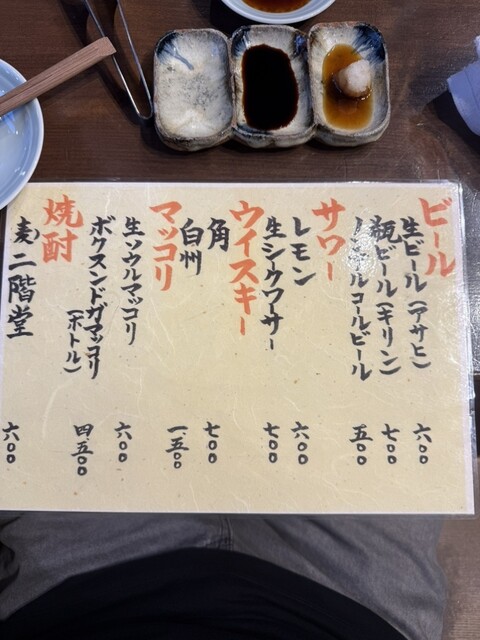 ビール
生ビール（アサヒ） 六〇〇
瓶ビール（キリン） 七〇〇
ノンアルコールビール 五〇〇
サワー
レモン 六〇〇
生シークワーサー 七〇〇
ウイスキー
角 七〇〇
白州 一五〇〇
マッコリ
生ソウルマッコリ 六〇〇
ボクスンドガマッコリ（ボトル） 四五〇〇
焼酎
麦 二階堂 六〇〇